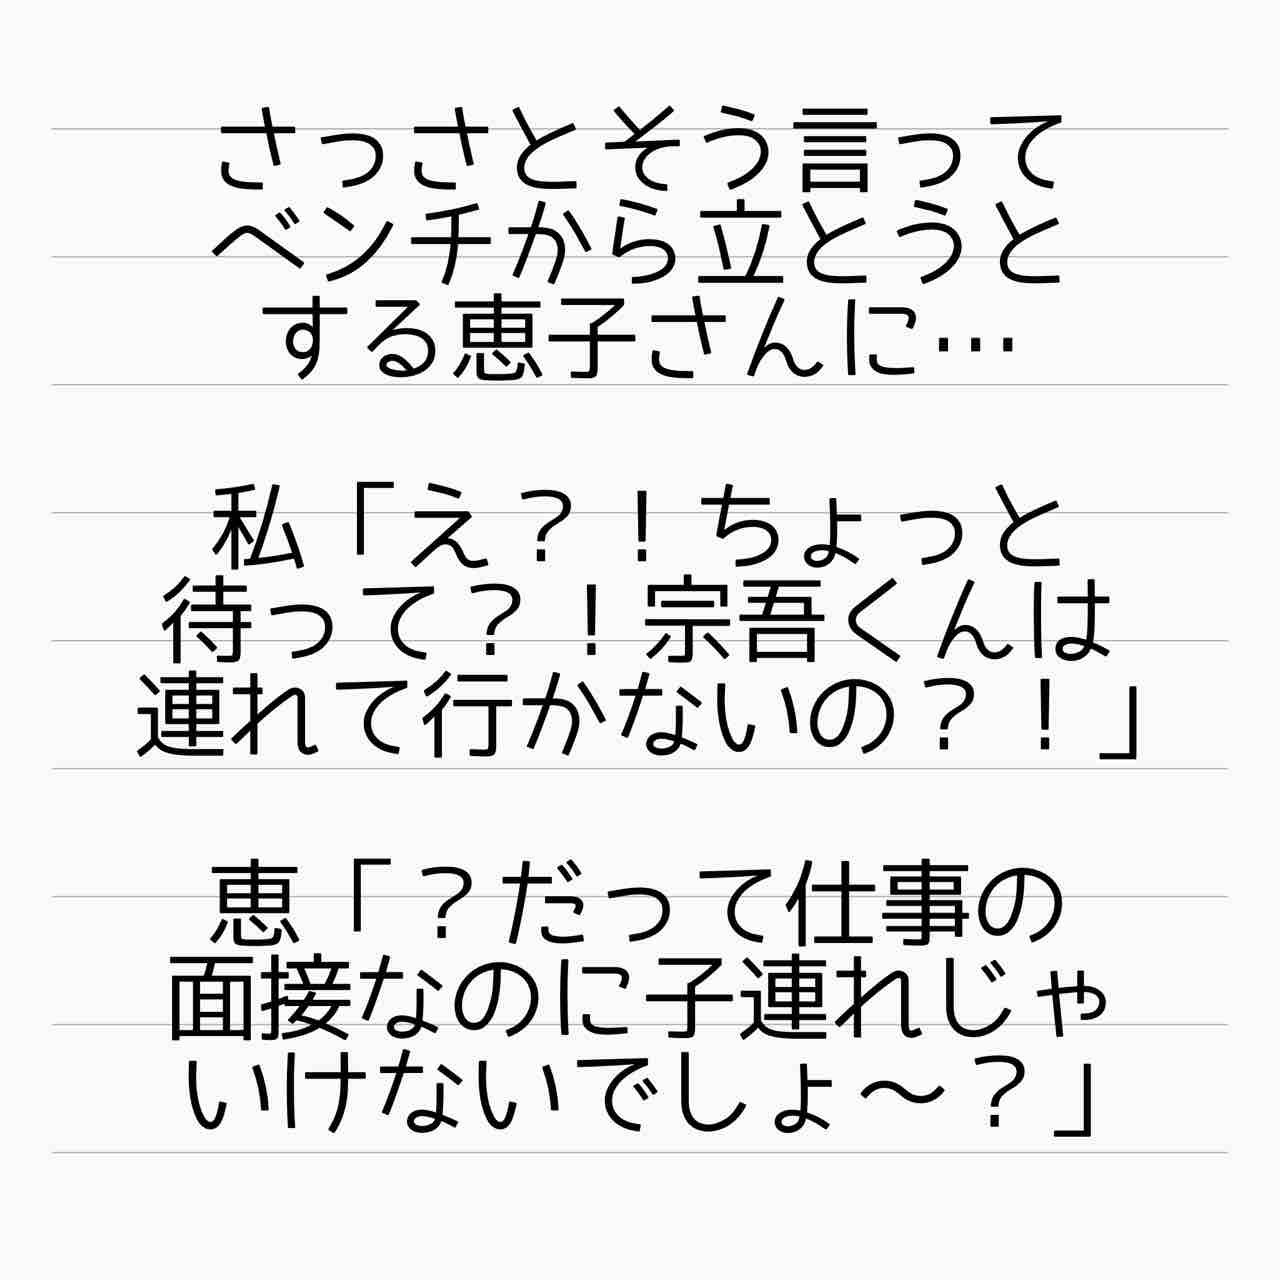 さっさとそう言って
ベンチから立とうと
する恵子さんに…
私「え？！ちょっと
待って？！宗吾くんは
連れて行かないの？！」
恵「？だって仕事の
面接なのに子連れじゃ
いけないでしょ〜？」